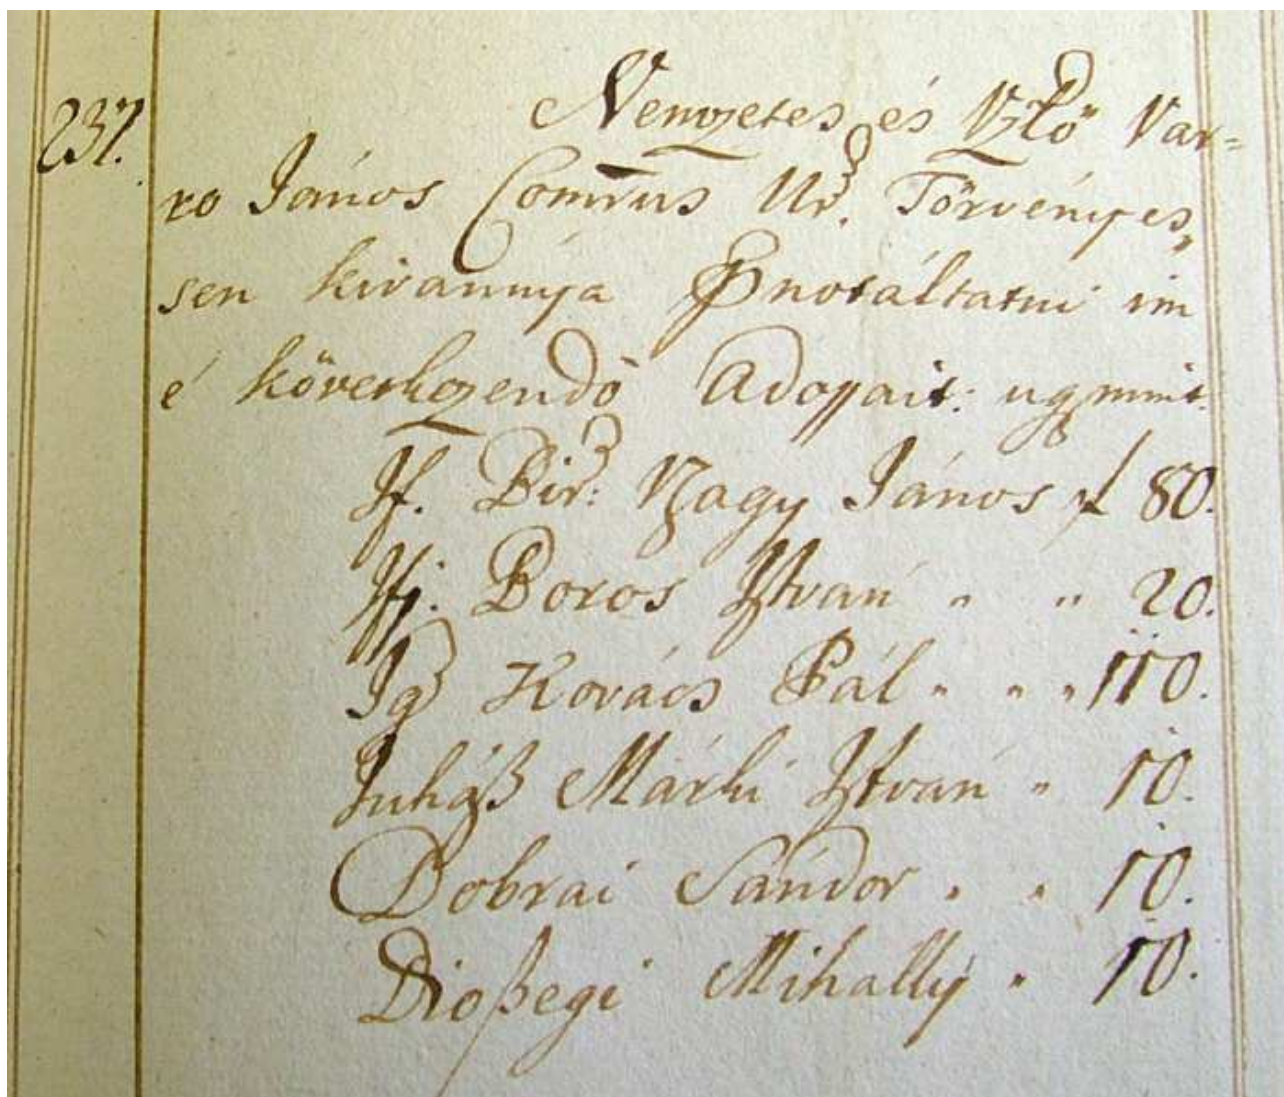 237. Nemzetes és Vzlő Var=
ro János Comrus Ur. Törvényes„
sen kivánnya Pnotáltatni im
é következendő Adossait: ugymint.
If. Bir: Nagy János f 80.
Ifj. Boros Istvan „ „ 20.
Ig Kovács Pál „ „ „ 110.
Juháß Márki Istvan „ 10.
Dobrai Sándor „ „ 10.
Dioßegi Mihallÿ „ 10.